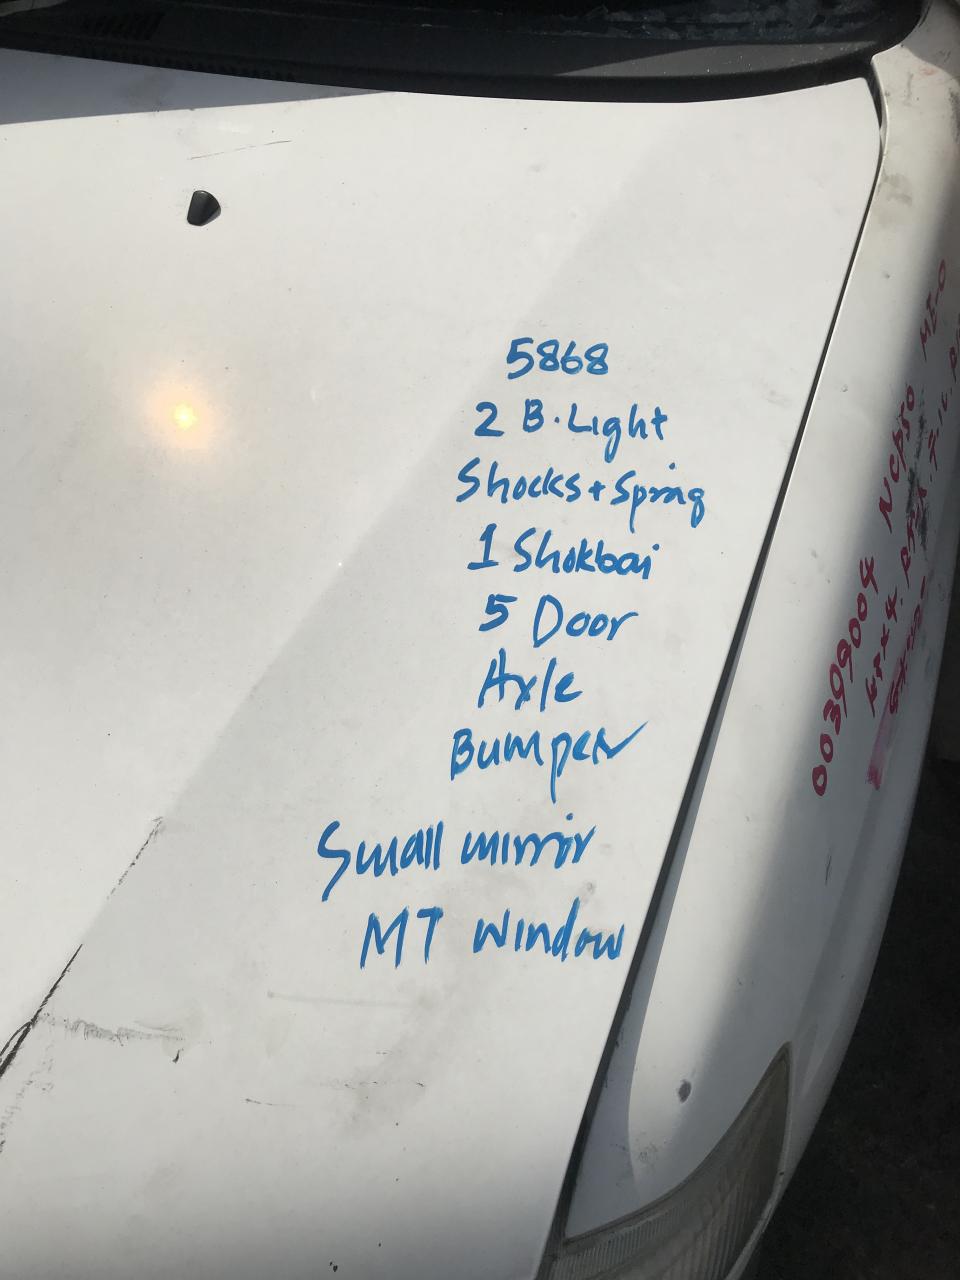 5868
2 B.Light
Shocks + Spring
1 Shokbai
5 Door
Axle
Bumper
Small mirrir
MT window
00399004 NCP50